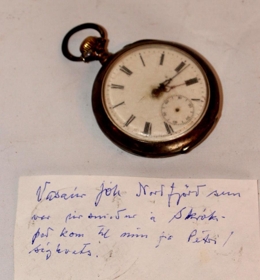 Vasaúr Jóh. Nordfjörð sem
var úrsmiður á Skrók-
það kom til mín frá Pétri
sighvats.